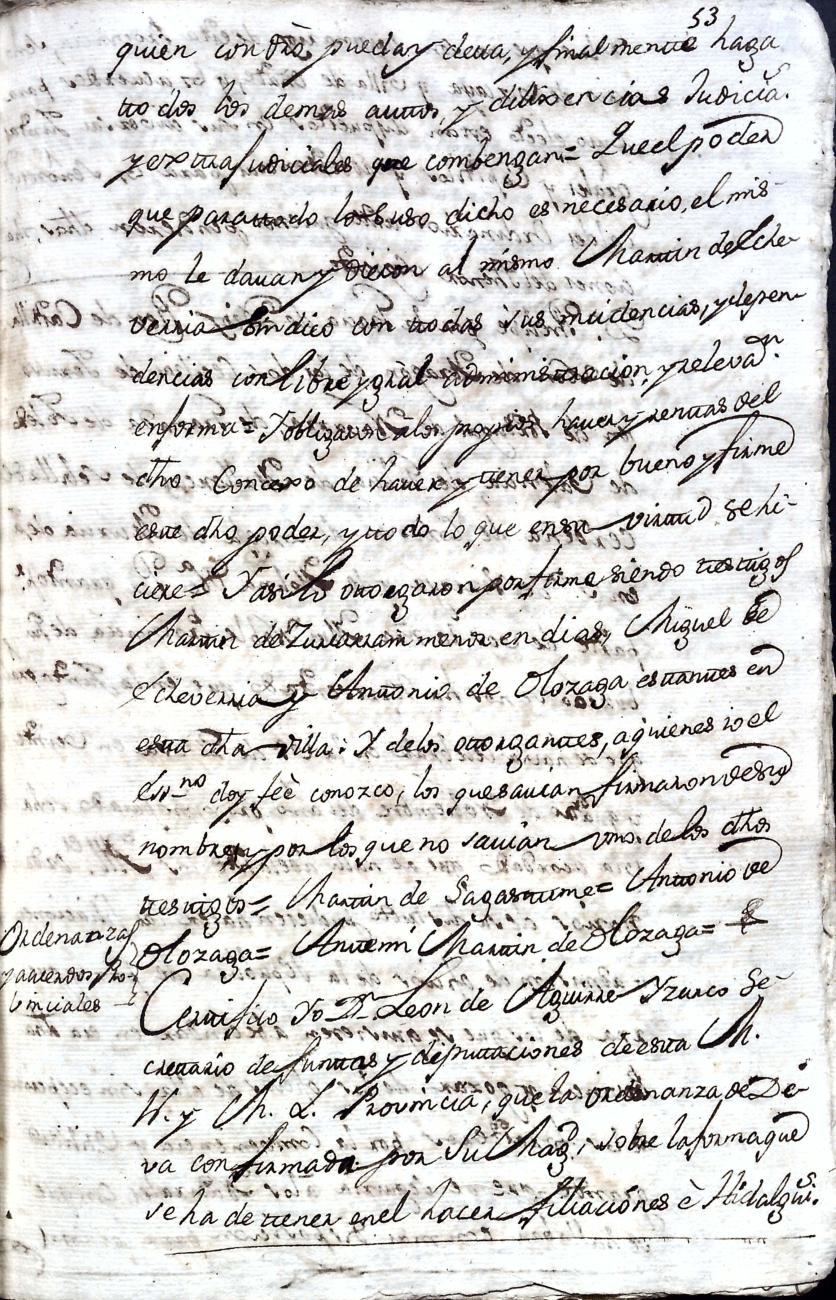 53
quièn con dro pueda, y deva, y finalmente haga
ttodos los demas auttos, y dilixencias Judicia.s
y extrajudiciales que combengan= Que el poder
que para ttodo lo suso dicho es necesario, el mis-
mo le davan y dieron al mismo Martin de Eche-
verria Sindico con ttodas sus incidencias, y depen-
dencias con libre y gràl administracion, y relevaon.
en forma= Y obligaron à los propios, haver y renttas del
dho Concexo de haver y tener por bueno y firme
este dho poder, y ttodo lo que en su virttud se hi-
ciere= Y asi lo ottorgaron por firme siendo ttesttigos
Martin de Zuriarrain menor en dias, Miguel de
Echeverria y Anttonio de Olozaga esttanttes en
estta dha villa: Y de los ottorganttes, a quienes io el
essno doy feè conozco, los que savian firmaron de sus
nombres, y por los que no savian uno de los dhos
ttesttigos= Martin de Sagasttume= Anttonio de
Olozaga= Antte mi Martin de Olozaga=
Ordenanzas
y acuerdos Pro-
binciales
Certtifico Yo Dn Leon de Aguirre Yzurco Se-
crettario de Junttas y diputtaciones de estta M.
N. y M. L. Provincia, que la ordenanza de De-
va confirmada por Su Magd, sobre la forma que
se ha de ttener en el hacer filiaciónes è Hidalguis.